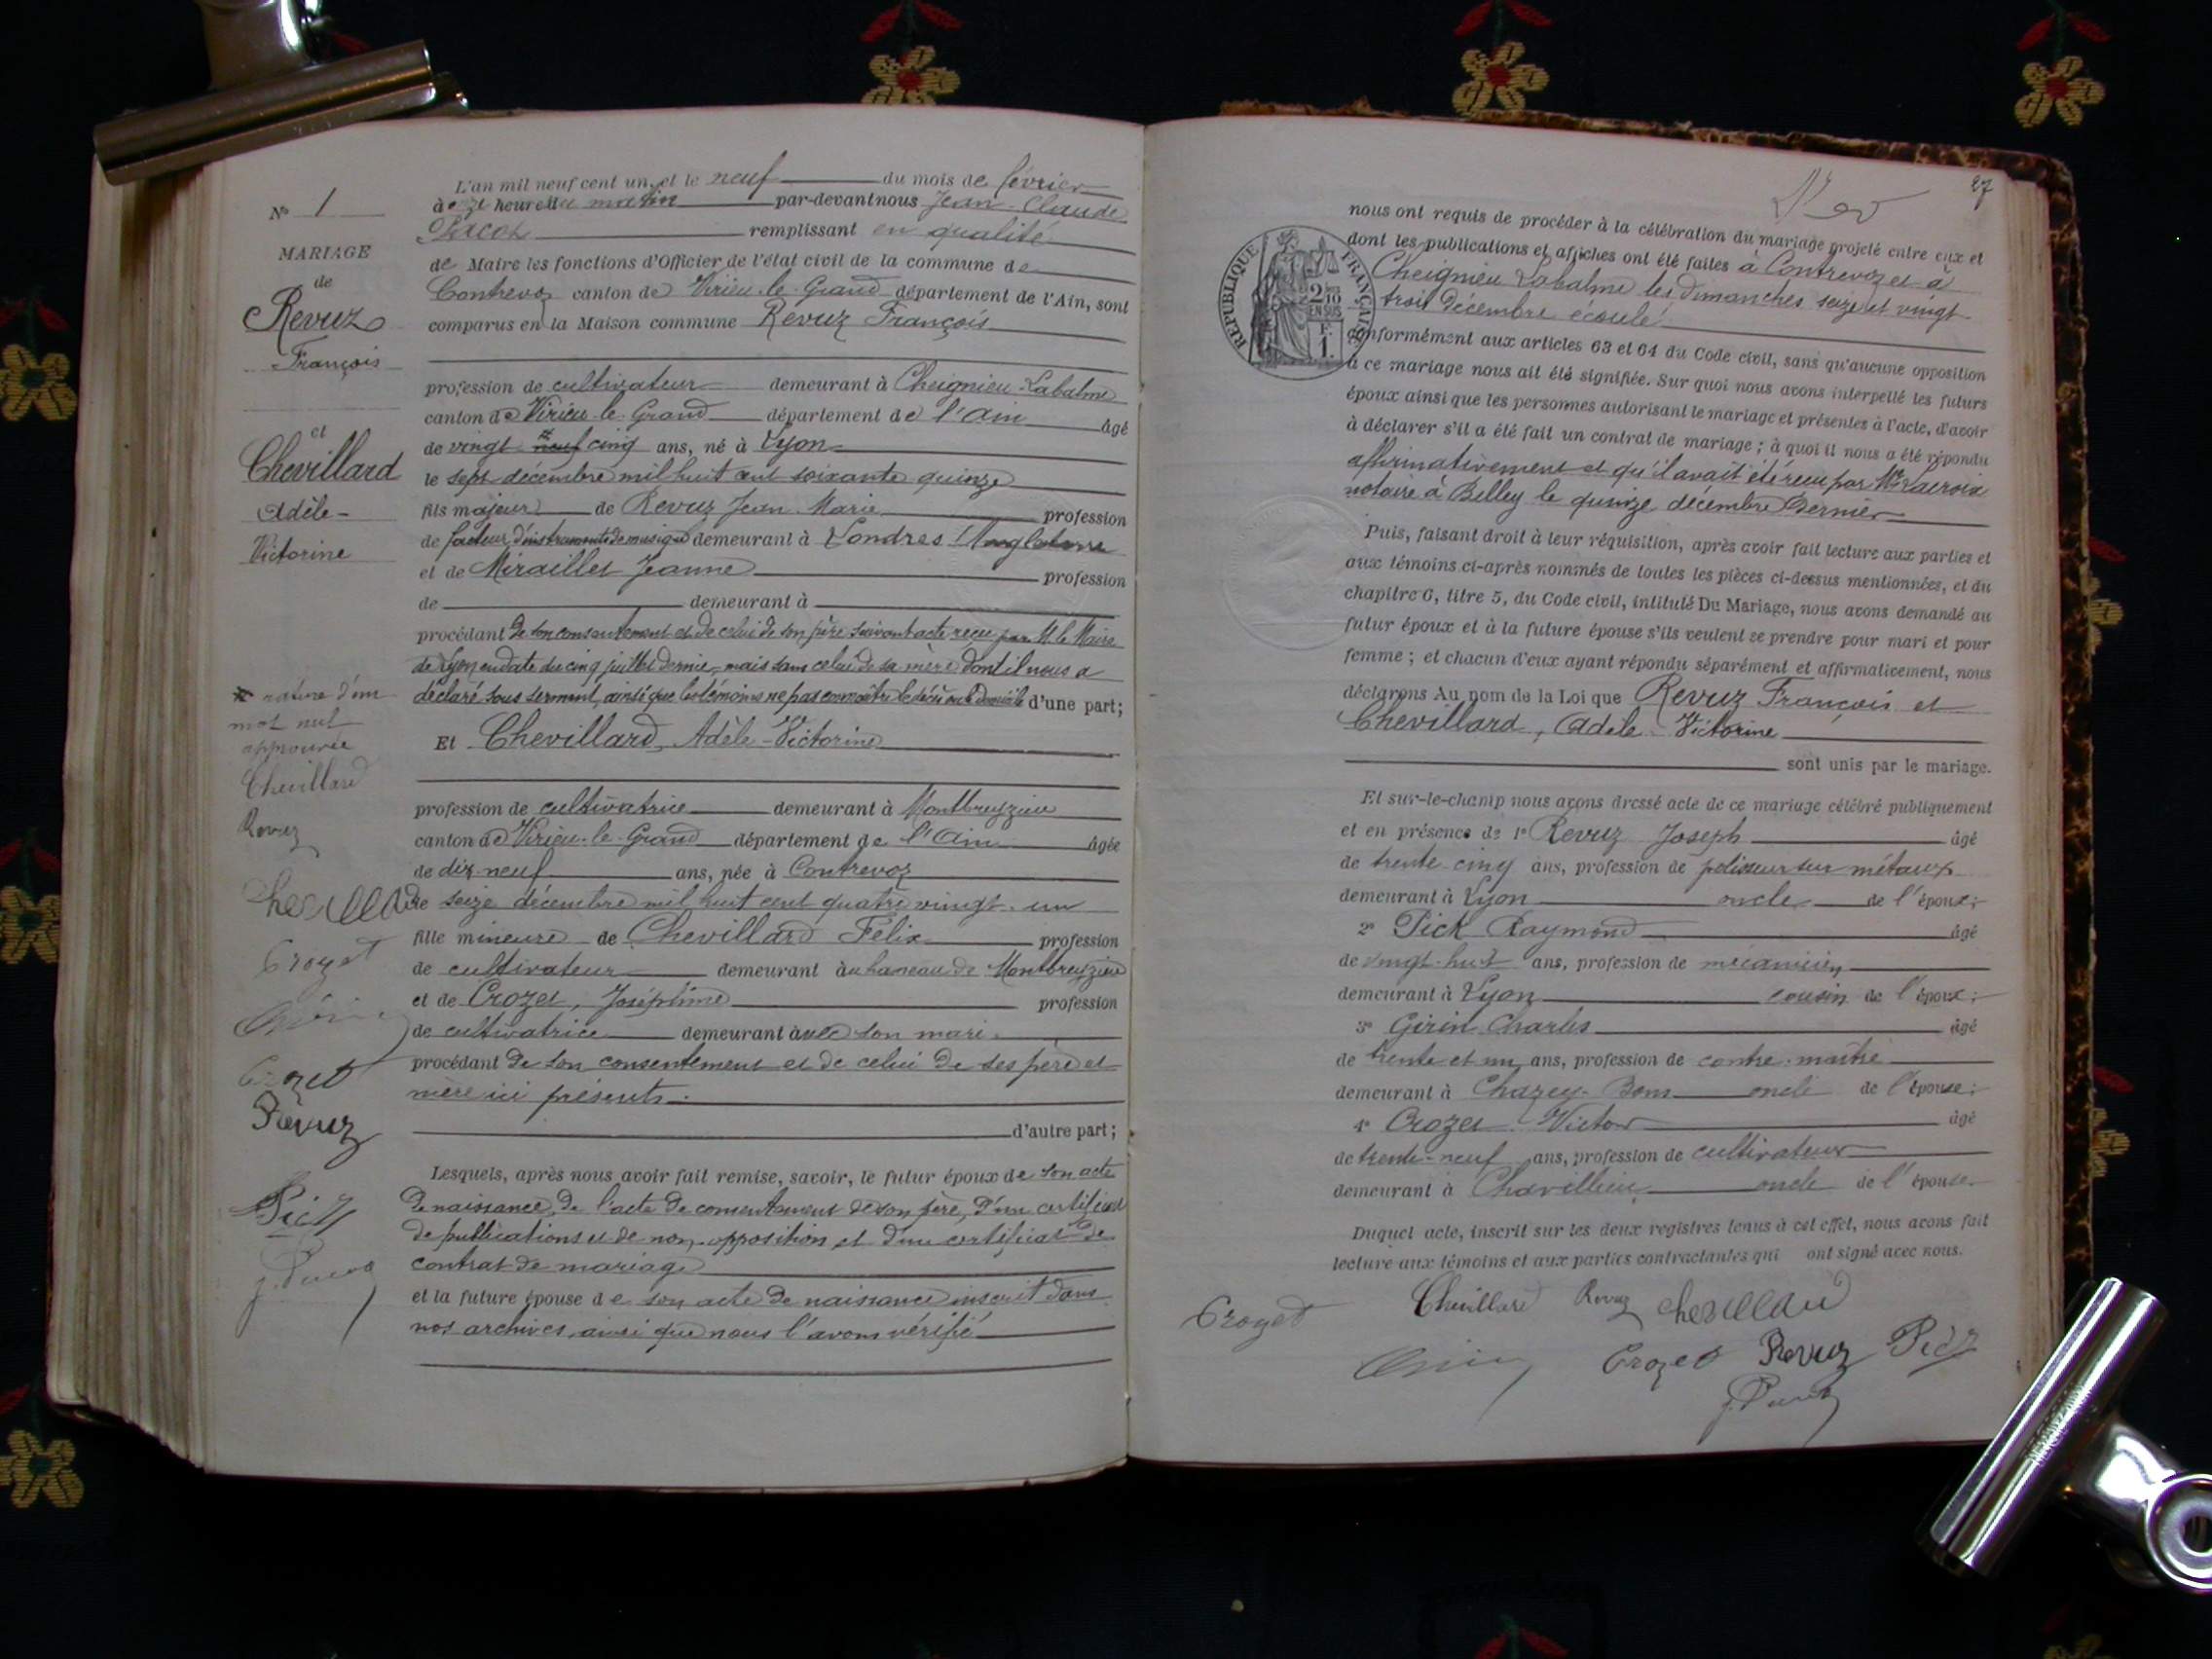 N° 1
MARIAGE
de
Revuz
François
et
Chevillard
Adèle-
Victorine
rature d'un
mot nul
approuvée
Chevillard
Revuz
Chevillard
Crozet
Crozet
Revuz
Pick
L'an mil neuf cent un, et le neuf du mois de février
à onze heures du matin par-devant nous Jean-Claude
remplissant en qualité
de Maire les fonctions d'Officier de l'état civil de la commune de
Contrevoz canton de Virieu-le-Grand département de l'Ain, sont
comparus en la Maison commune Revuz François
profession de cultivateur demeurant à Cheignieu-Labalme
canton de Virieu-le-Grand département de l'Ain âgé
de vingt neuf cinq ans, né à Lyon
le sept décembre mil huit cent soixante quinze
fils majeur de Revuz Jean-Marie profession
de facteur d'instruments de musique demeurant à Londres Angleterre
et de Miraillet Jeanne profession
de demeurant à
procédant de son consentement et de celui de son père suivant acte reçu par M. le Maire
de Lyon en date du cinq juillet dernier, mais sans celui de sa mère dont il nous a
déclaré sous serment, ainsi que les témoins ne pas connaître le décès ou le domicile d'une part;
Et Chevillard, Adèle-Victorine
profession de cultivatrice demeurant à Montbreyzieu
canton de Virieu-le-Grand département de l'Ain âgée
de dix-neuf ans, née à Contrevoz
le seize décembre mil huit cent quatre vingt-un
fille mineure de Chevillard Félix profession
de cultivateur demeurant au hameau de Montbreyzieu
et de Crozet, Joséphine profession
de cultivatrice demeurant avec son mari
procédant de son consentement et de celui de ses père et
mère ici présents.
d'autre part;
Lesquels, après nous avoir fait remise, savoir, le futur époux de son acte
de naissance, de l'acte de consentement de son père, d'un certificat
de publications et de non-opposition et d'un certificat de
contrat de mariage
et la future épouse de son acte de naissance inscrit dans
nos archives, ainsi que nous l'avons vérifié
27
nous ont requis de procéder à la célébration du mariage projeté entre eux et
dont les publications et affiches ont été faites à Contrevoz et à
Cheignieu Labalme les dimanches seize et vingt
trois décembre écoulé
conformément aux articles 63 et 64 du Code civil, sans qu'aucune opposition
à ce mariage nous ait été signifiée. Sur quoi nous avons interpellé les futurs
époux ainsi que les personnes autorisant le mariage et présentes à l'acte, d'avoir
à déclarer s'il a été fait un contrat de mariage; à quoi il nous a été répondu
affirmativement et qu'il avait été reçu par Me Lacroix
notaire à Belley le quinze décembre dernier
Puis, faisant droit à leur réquisition, après avoir fait lecture aux parties et
aux témoins ci-après nommés de toutes les pièces ci-dessus mentionnées, et du
chapitre 6, titre 5, du Code civil, intitulé Du Mariage, nous avons demandé au
futur époux et à la future épouse s'ils veulent se prendre pour mari et pour
femme; et chacun d'eux ayant répondu séparément et affirmativement, nous
déclarons Au nom de la Loi que Revuz François et
Chevillard, Adèle-Victorine
sont unis par le mariage.
Et sur-le-champ nous avons dressé acte de ce mariage célébré publiquement
et en présence de 1° Revuz Joseph âgé
de trente-cinq ans, profession de polisseur sur métaux
demeurant à Lyon oncle de l'époux;
2° Pick Raymond âgé
de vingt-huit ans, profession de mécanicien
demeurant à Lyon cousin de l'époux;
3° Girin Charles âgé
de trente et un ans, profession de contre-maître
demeurant à Chazey-Bons oncle de l'épouse;
4° Crozet Victor âgé
de trente-neuf ans, profession de cultivateur
demeurant à Chavillieu oncle de l'épouse.
Duquel acte, inscrit sur les deux registres tenus à cet effet, nous avons fait
lecture aux témoins et aux parties contractantes qui ont signé avec nous.
Crozet Chevillard Revuz Chevillard
Crozet Revuz Pick
RÉPUBLIQUE FRANÇAISE
2/10
EN SUS
F.
1.